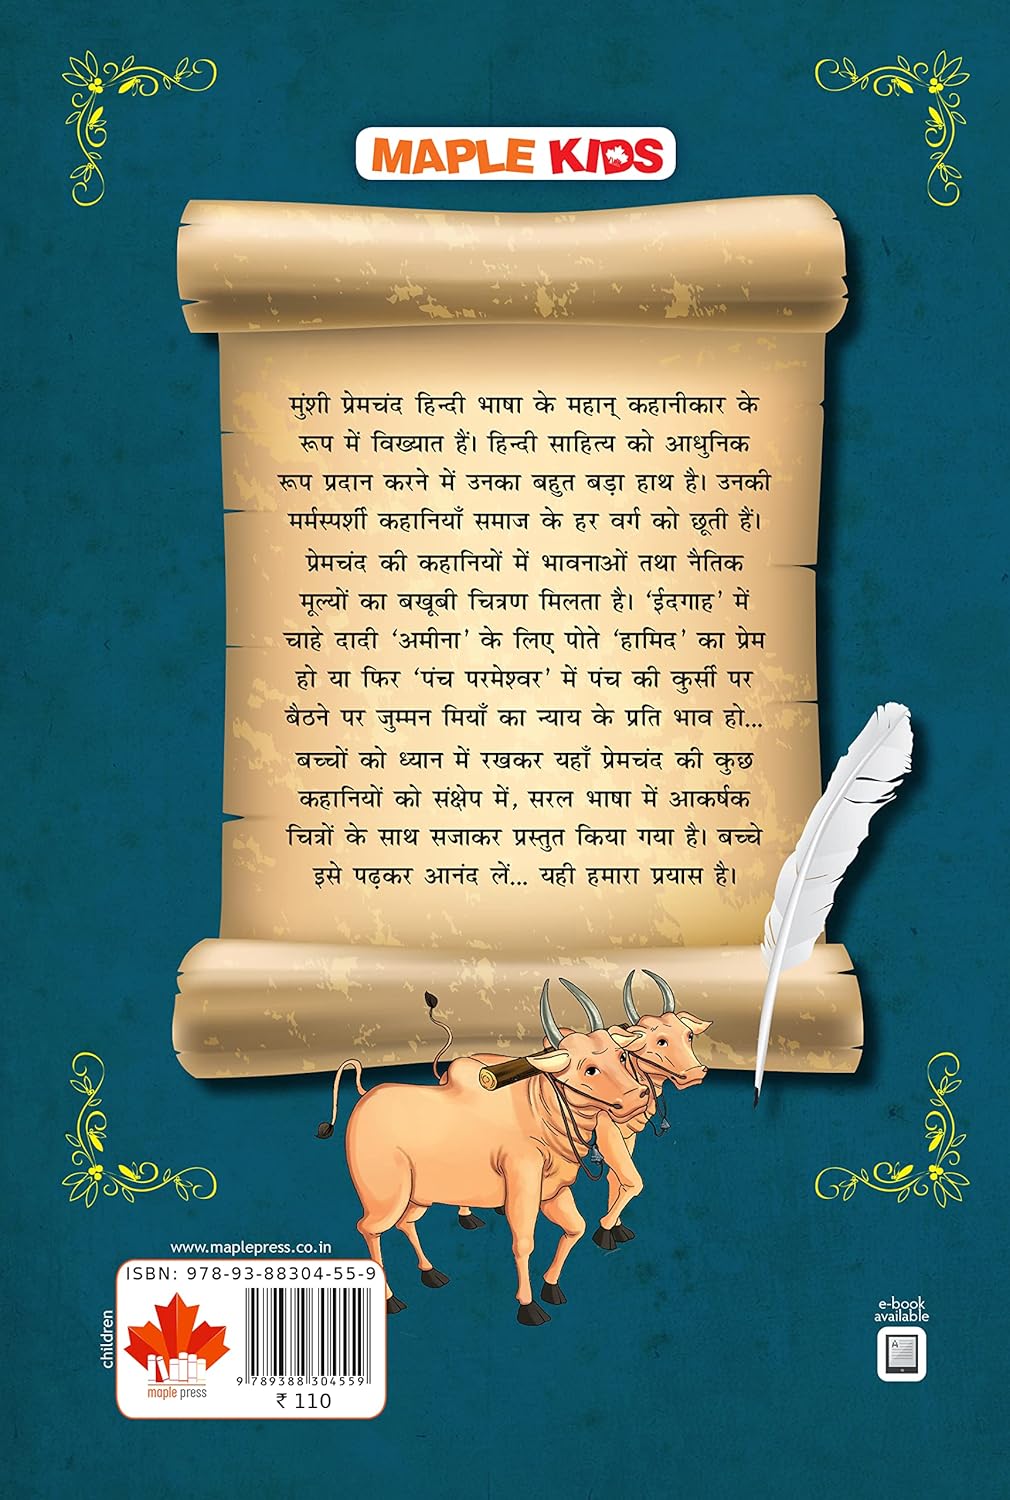 MAPLE KIDS
मुंशी प्रेमचंद हिन्दी भाषा के महान् कहानीकार के
रूप में विख्यात हैं। हिन्दी साहित्य को आधुनिक
रूप प्रदान करने में उनका बहुत बड़ा हाथ है। उनकी
मर्मस्पर्शी कहानियाँ समाज के हर वर्ग को छूती हैं।
प्रेमचंद की कहानियों में भावनाओं तथा नैतिक
मूल्यों का बखूबी चित्रण मिलता है। ‘ईदगाह’ में
चाहे दादी ‘अमीना’ के लिए पोते ‘हामिद’ का प्रेम
हो या फिर ‘पंच परमेश्वर’ में पंच की कुर्सी पर
बैठने पर जुम्मन मियाँ का न्याय के प्रति भाव हो...
बच्चों को ध्यान में रखकर यहाँ प्रेमचंद की कुछ
कहानियों को संक्षेप में, सरल भाषा में आकर्षक
चित्रों के साथ सजाकर प्रस्तुत किया गया है। बच्चे
इसे पढ़कर आनंद लें... यही हमारा प्रयास है।
www.maplepress.co.in
ISBN: 978-93-88304-55-9
children
maple press
9 789388 304559
₹ 110
e-book
available
A